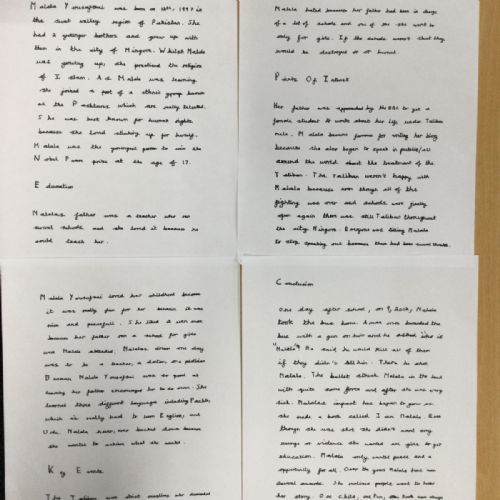 Malala Yousafzai was born on 12th, 1997 in
the swat valley region of Pakistan. She
had 2 younger brothers and grew up with
them in the city of Mingora. Whilst Malala
was growing up, she practiced the religion
of Islam. As Malala was learning
she joined a part of a ethnic group known
as the Pashtuns, which are really talented.
She was best known for human rights
because she loved sticking up for herself.
Malala was the youngest person to win the
Nobel Peace prize at the age of 17.
Education
Malalas father was a teacher who ran
several schools and she loved it because he
could teach her.
Malala hated because her father had been in charge
of a lot of schools and one of them she went to
only for girls. If the schools weren't shut they
would be destroyed or burnt.
Points Of Interest
Her father was approached by the BBC to get a
female student to write about her life under Taliban
rule. Malala became famous for writing her blog
because she also began to speak in public/all
around the world about the treatment of the
Taliban. The Taliban weren't happy with
Malala because even though all of the
fighting was over and schools were finally
open again there was still Taliban throughout
the city Mingora. Everyone was telling Malala
to stop speaking out because there had been several threats.
Malala Yousafzai loved her childhood because
it was really fun for her because it was
nice and peacefull. She liked it even more
because her father ran a school for girls
which Malala attended. Malalas dream one day
was to be a teacher, a doctor, or politician
Because Malala Yousafzai was so good at
learning her father encouraged her to do more. She
learned three different languages including Pashto,
which is really hard to learn English, and
Urdu. Malala never, ever backed down because
she wanted to achieve what she could.
Key Events
The Taliban was strict muslims who demanded
Conclusion
One day after school, on 9, 2012, Malala
took the bus home. A man over boarded the
bus with a gun on him and he asked who is
"Malala"? He said he would kill all of them
if they didn't tell him. Then he shot
Malala. The bullet struck Malala in the head
with quite some force and after she was very
sick. Malalas impact has begun to grow as
she made a book called I am Malala. Even
though she was shot she didn't want any
revenge or violence she would use give to get
education. Malala only wanted peace and a
opportunity for all. Over the years Malala had won
several awards. She inspires people want to hear
her story. One Child, one Pen, one book can change